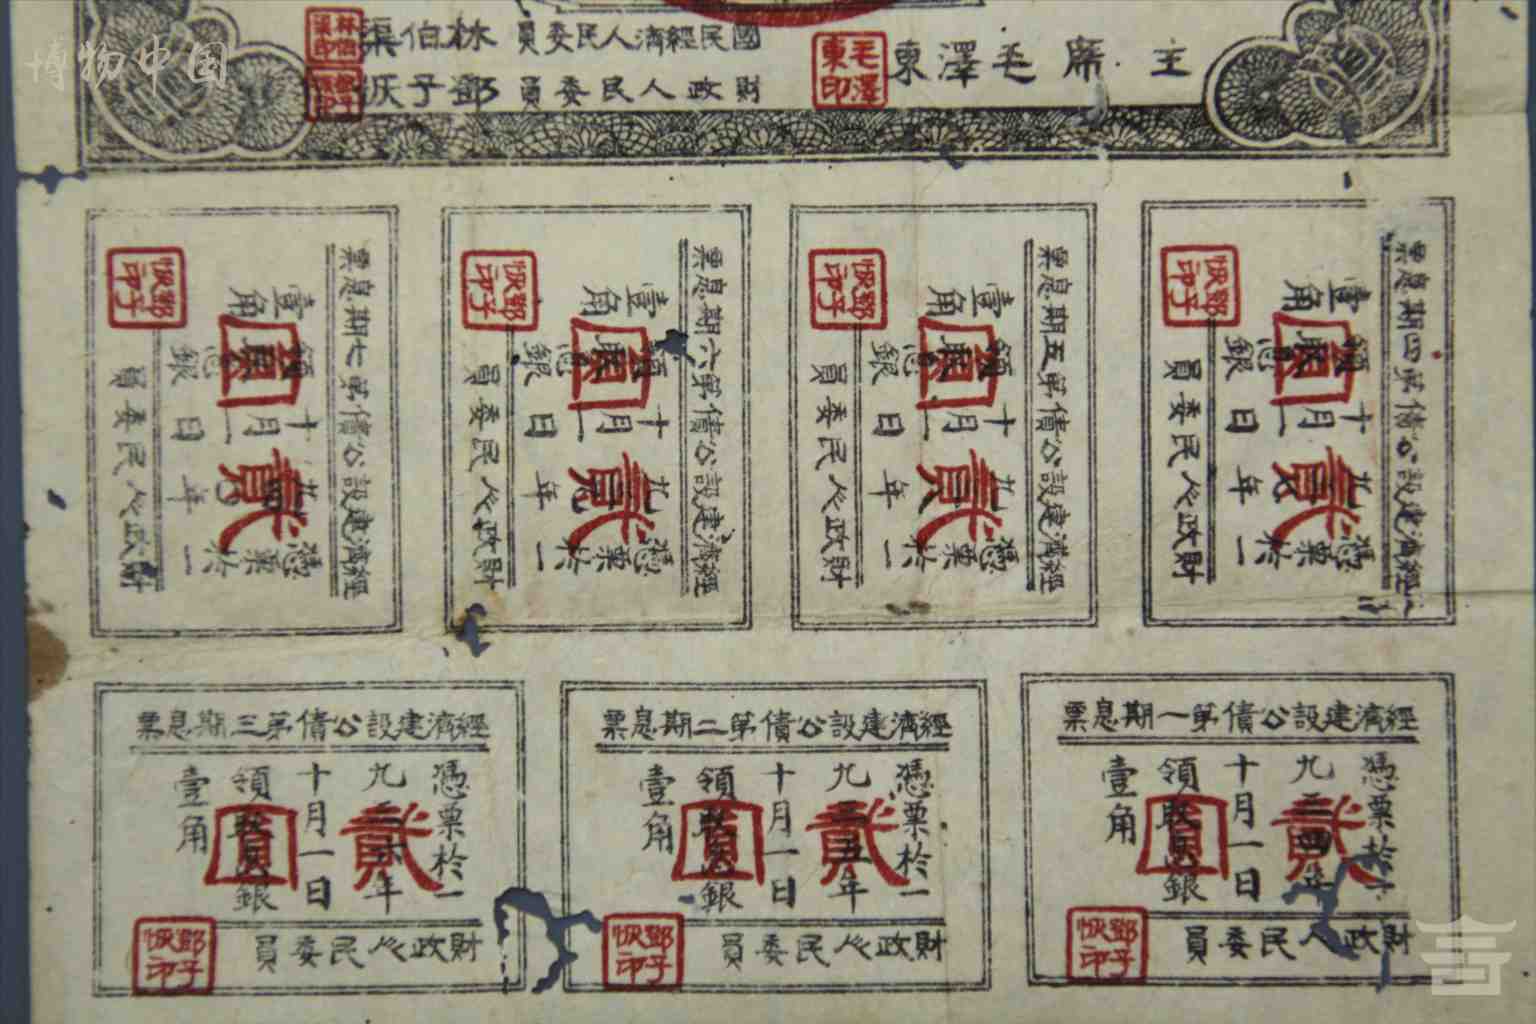 博物中国
主席 毛澤東
毛澤東印
國民經濟人民委員 林伯渠
林伯渠印
財政人民委員 鄧子恢
鄧子恢印
經濟建設公債第四期息票
憑票於一
年十月一日
領取息銀
壹角
貳圓
財政人民委員
鄧子恢印
經濟建設公債第五期息票
憑票於一
年十月一日
領取息銀
壹角
貳圓
財政人民委員
鄧子恢印
經濟建設公債第六期息票
憑票於一
年十月一日
領取息銀
壹角
貳圓
財政人民委員
鄧子恢印
經濟建設公債第七期息票
憑票於一
年十月一日
領取息銀
壹角
貳圓
財政人民委員
鄧子恢印
經濟建設公債第一期息票
憑票於一
九三四年
十月一日
領取息銀
壹角
貳圓
財政人民委員
鄧子恢印
經濟建設公債第二期息票
憑票於一
九三五年
十月一日
領取息銀
壹角
貳圓
財政人民委員
鄧子恢印
經濟建設公債第三期息票
憑票於一
九三六年
十月一日
領取息銀
壹角
貳圓
財政人民委員
鄧子恢印